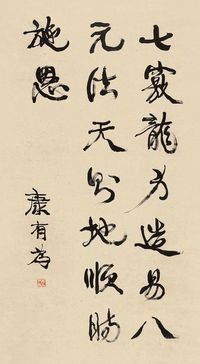 七窍龍身造易八
元法天則地順時
施恩
康有為